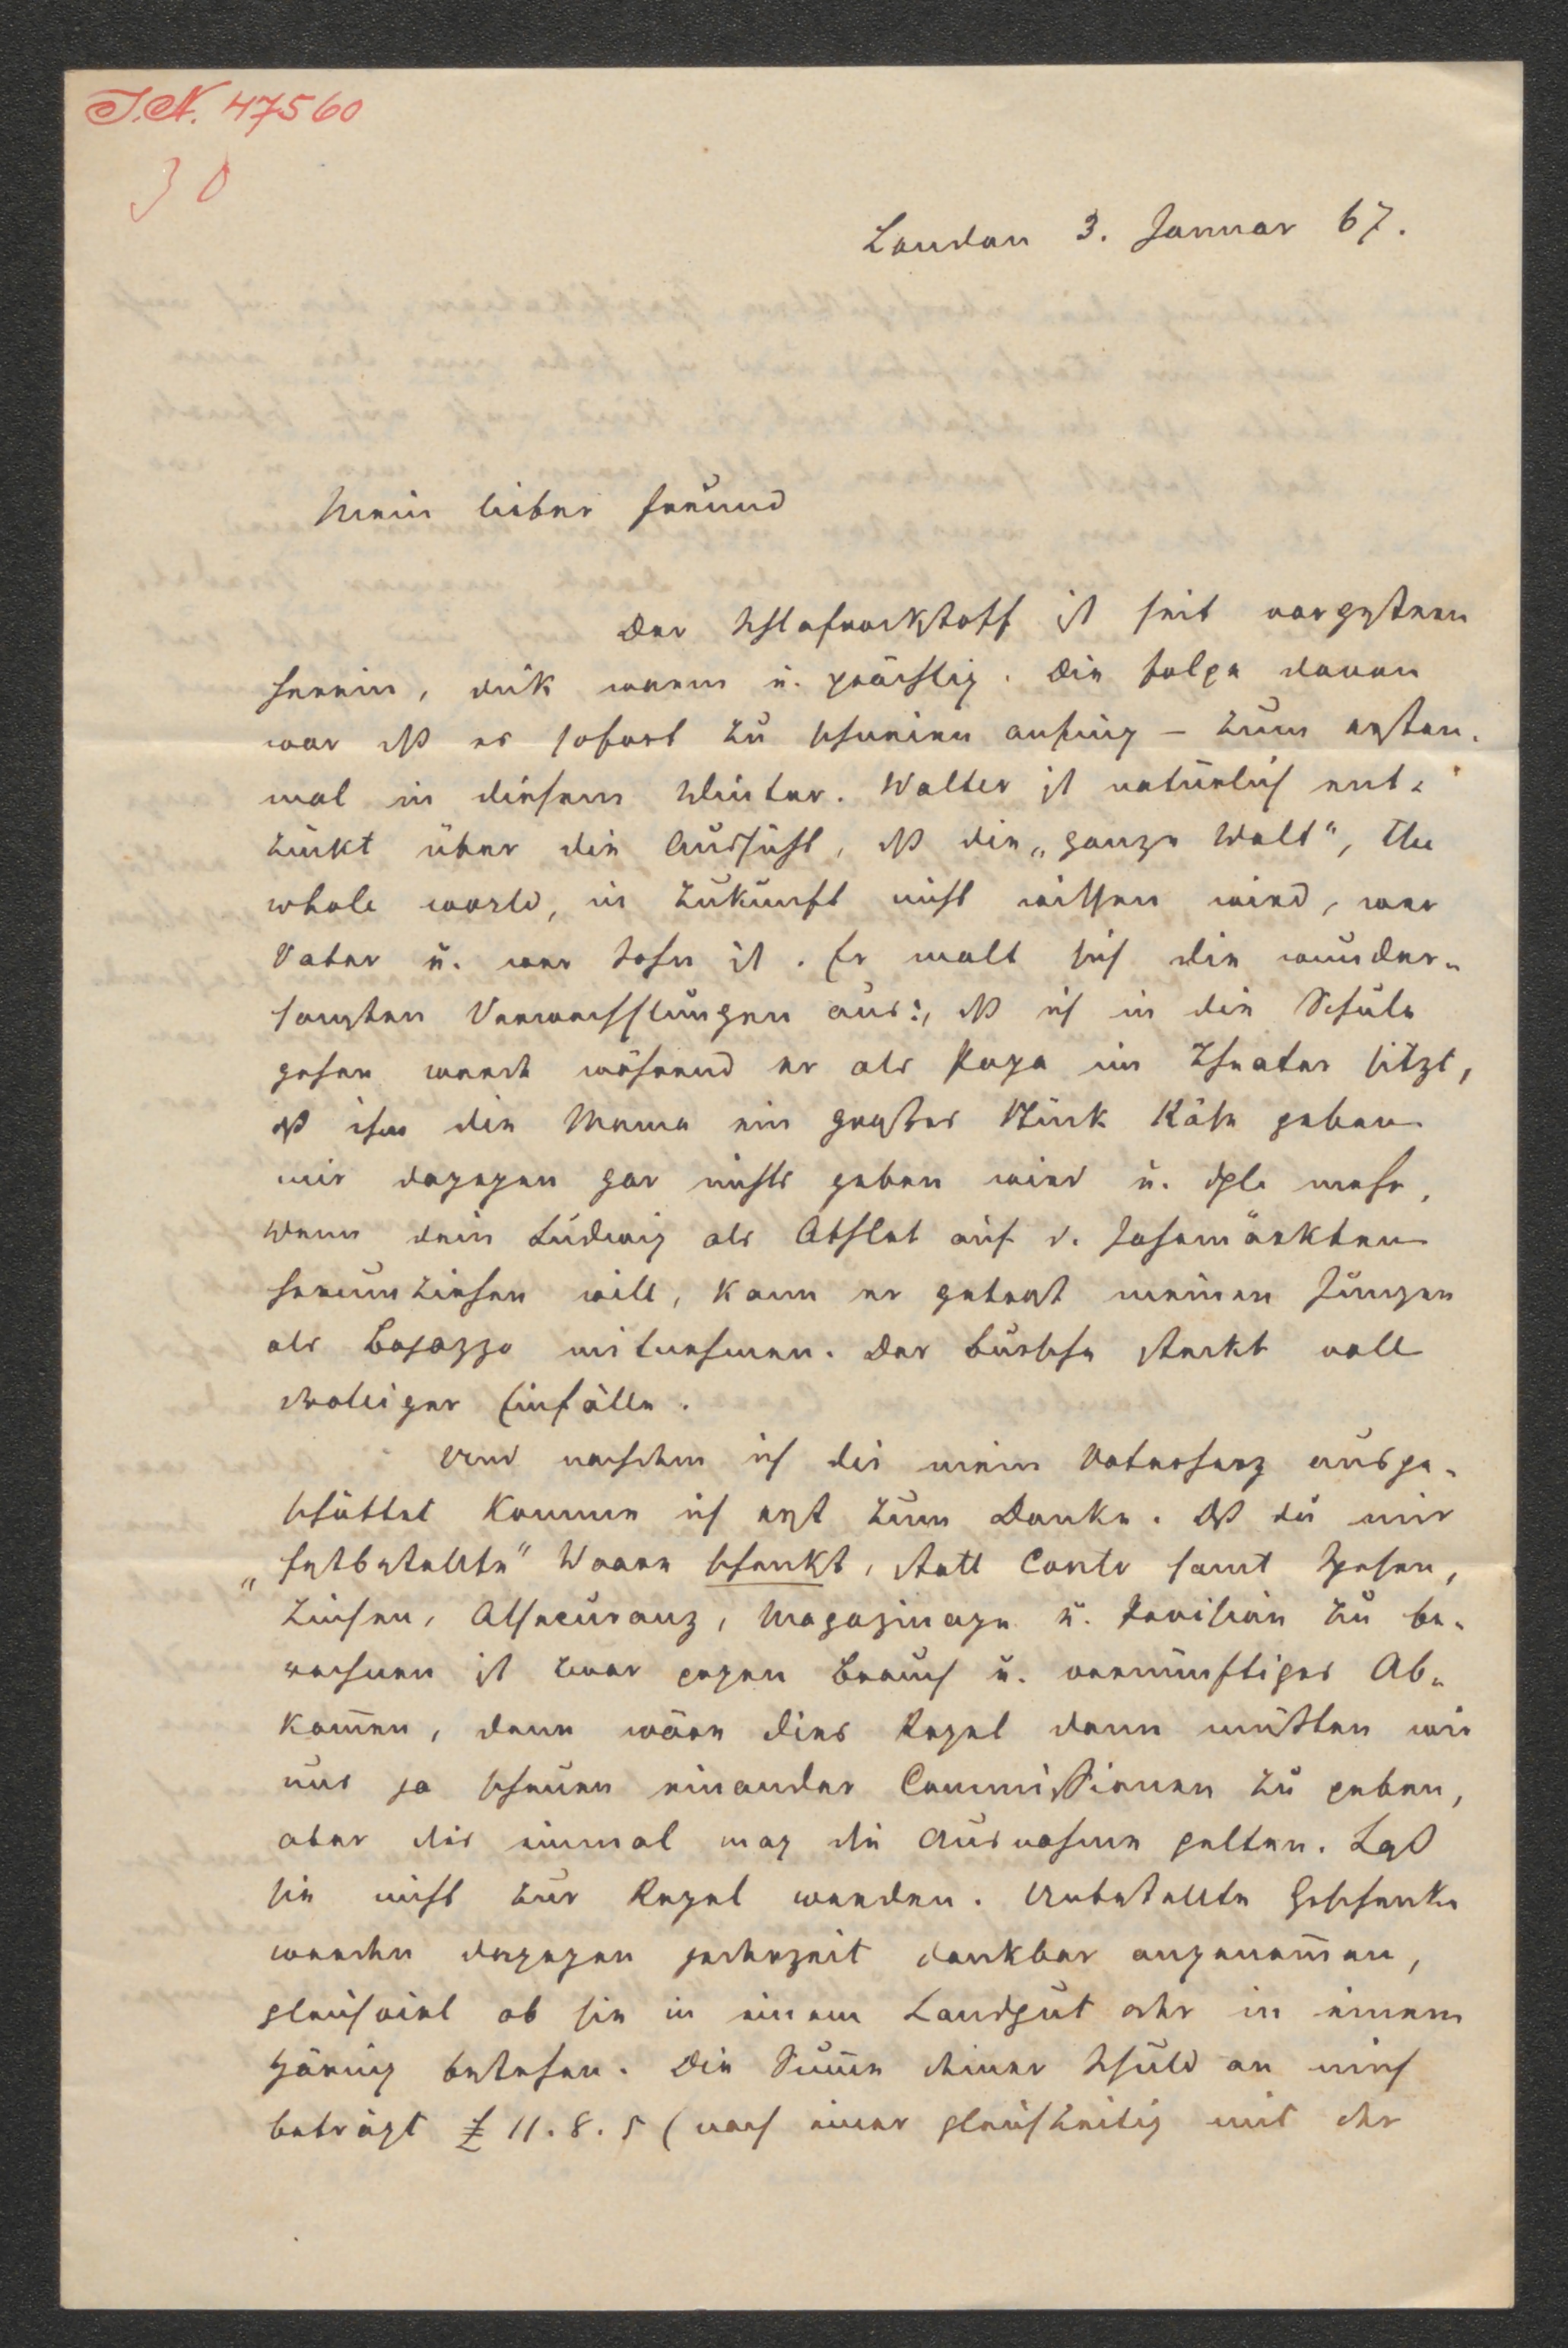 I.N. 47560
30
London 3. Januar 67.
Mein lieber Freund
Der Schlafrockstoff ist seit vorgestern
herein, dick warm u. prächtig. Die Folge davon
war dß es sofort zu schneien anfing – zum ersten-
mal in diesem Winter. Walter ist natürlich ent-
zückt über die Aussicht, dß die „ganze Welt“, the
whole world, in Zukunft nicht wissen wird, wer
Vater u. wer Sohn ist. Er malt sich die wunder-
samsten Verwechslungen aus:, dß ich in die Schule
gehen werde während er als Papa im Theater sitzt,
dß ihm die Mama ein großes Stück Käse geben
mir dagegen gar nichts geben wird u. dgl. mehr.
Wenn dein Ludwig als Athlet auf d. Jahrmärkten
herumziehen will, kann er getrost meinen Jungen
als Bajazzo mitnehmen. Der Bursche steckt voll
drolliger Einfälle.
Und nachdem ich dir mein Vaterherz ausge-
schüttet komme ich erst zum Danke. Dß du mir
„festbestellte“ Waare schenkst, statt Conto samt Spesen,
Zinsen, Assecuranz, Magazinage u. Provision zu be-
rechnen ist zwar gegen Brauch u. vernünftiges Ab-
kom̄en, denn wäre dies Regel dann müßten wir
uns ja scheuen einander Commissionen zu geben,
aber dies einmal mag die Ausnahme gelten. Laß
sie nicht zur Regel werden. Unbestellte Geschenke
werden dagegen jederzeit dankbar angenom̄en,
gleichviel ob sie in einem Landgut oder in einem
Häring bestehen. Die Sum̄e deiner Schuld an mich
beträgt £ 11.8.5 (nach einer gleichzeitig mit der